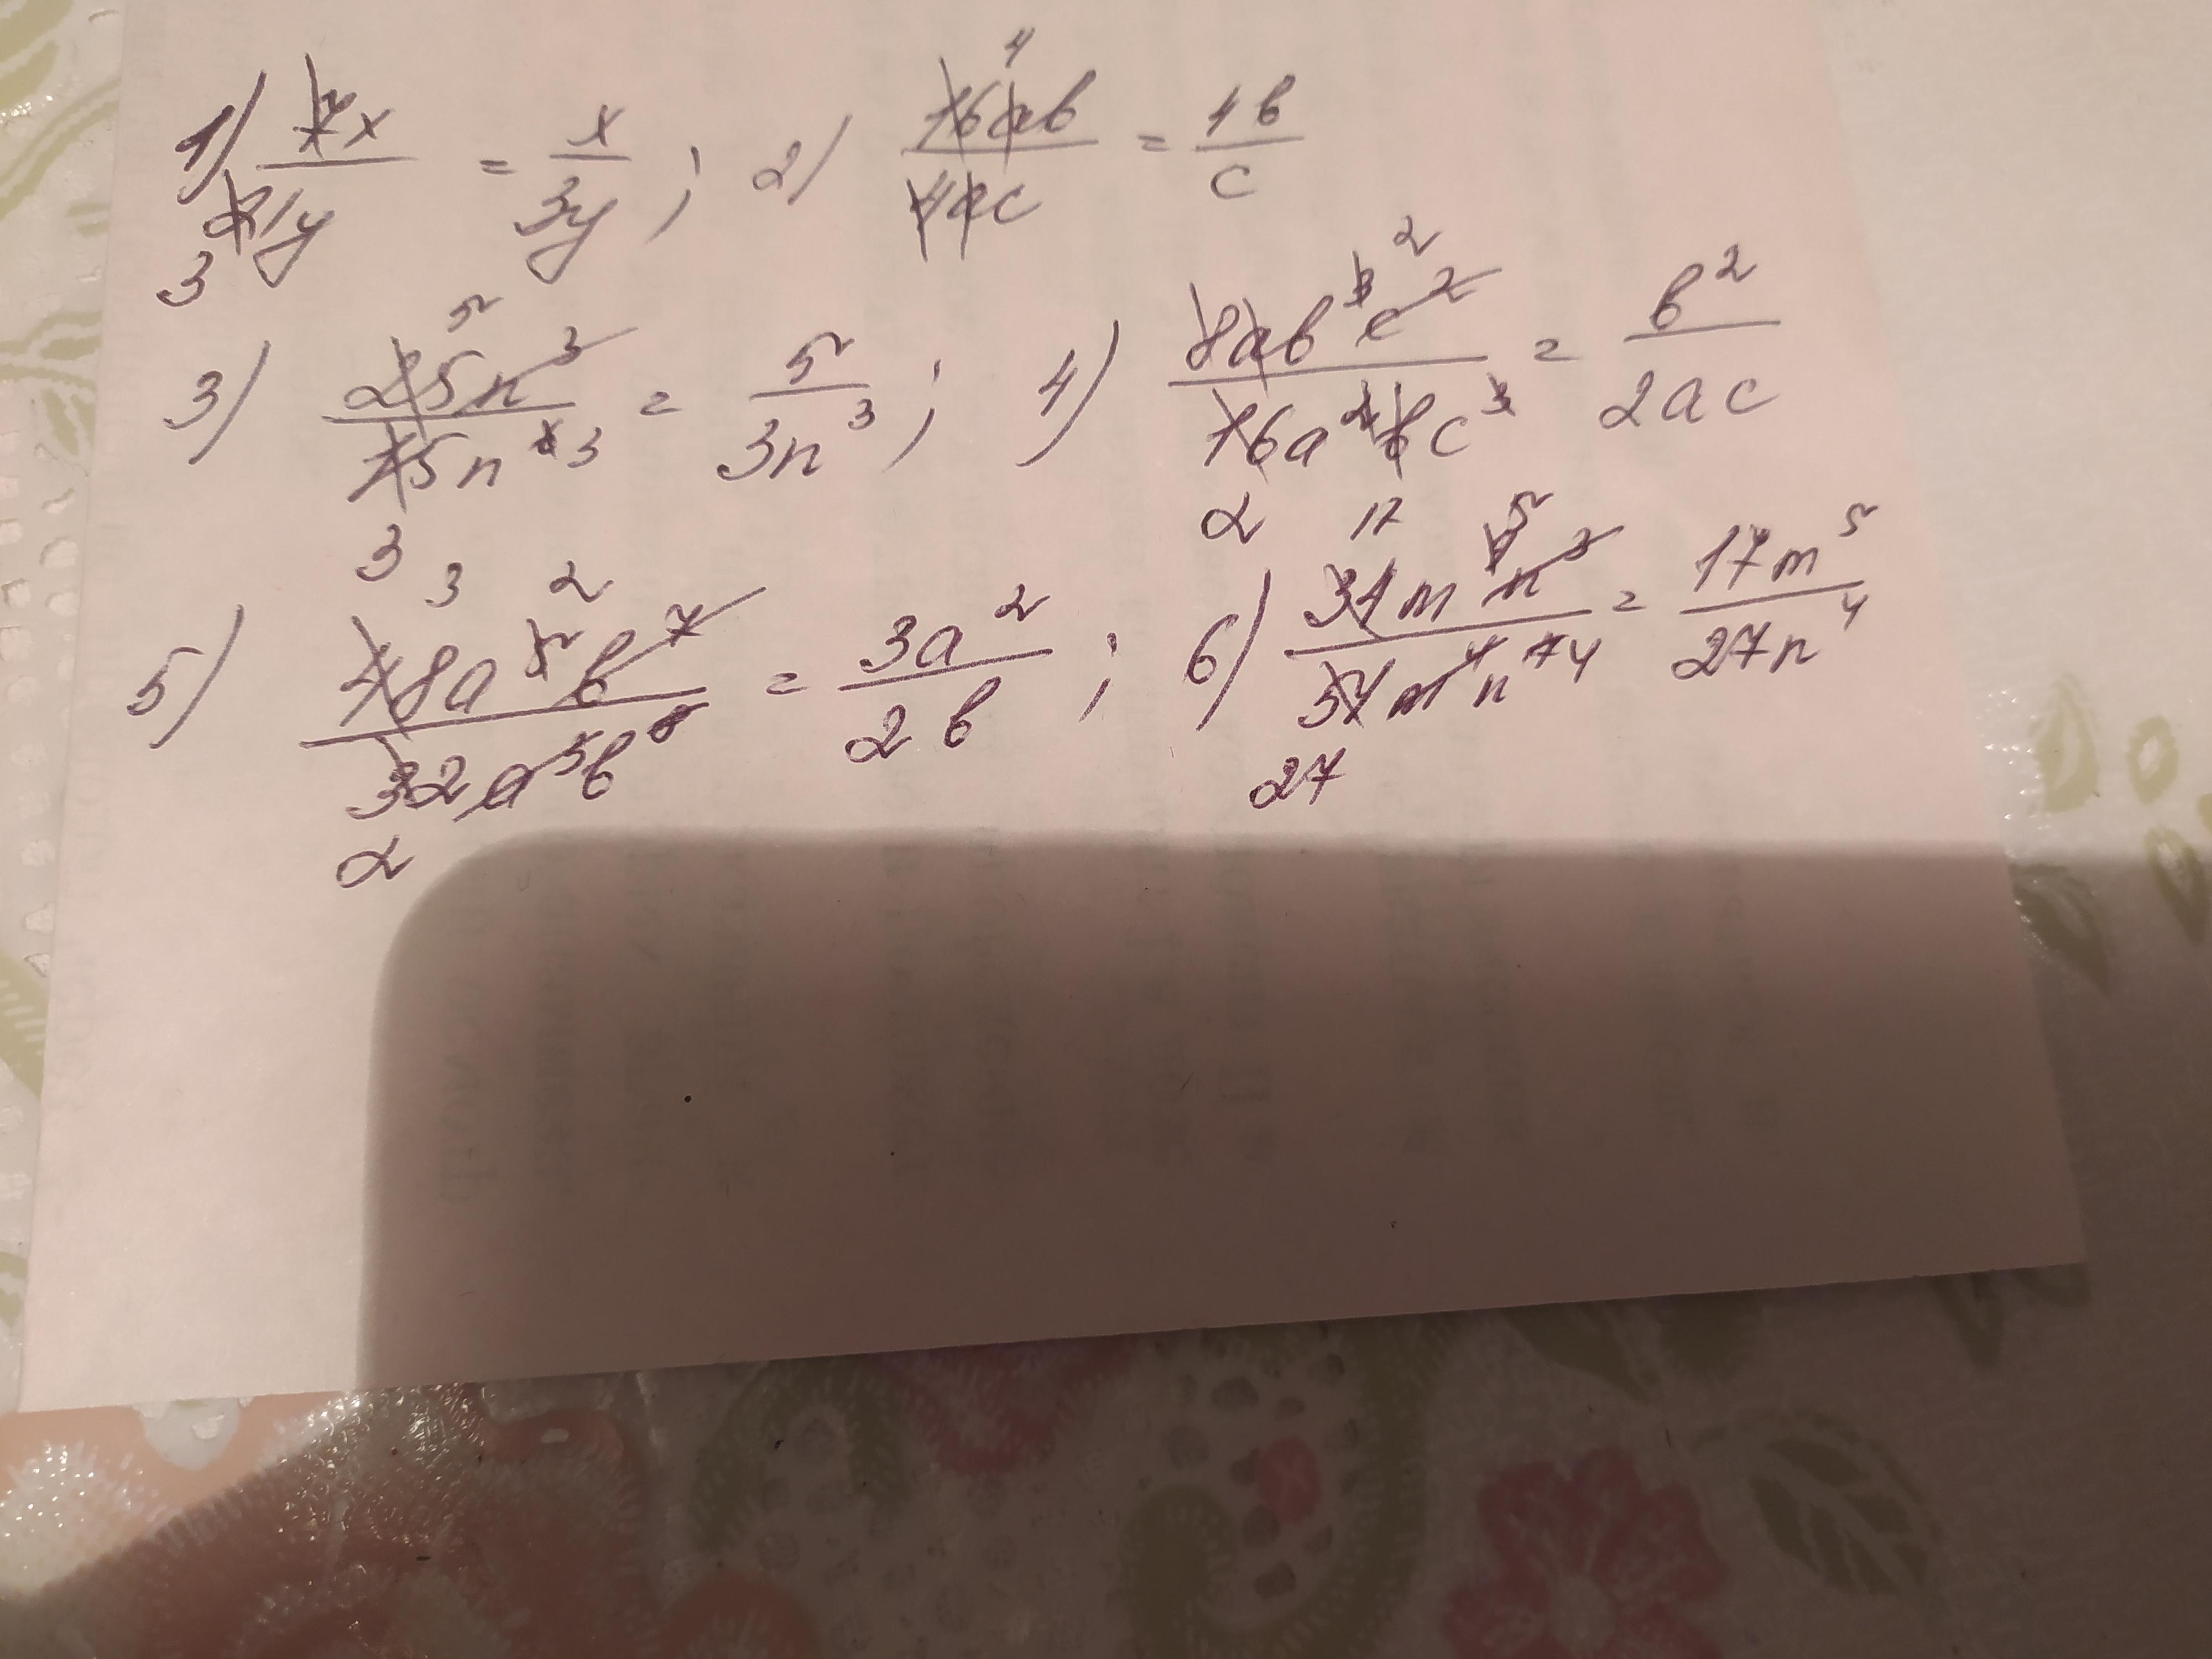 1) 7x/21y = x/3y ; 2) 16ab/4ac = 4b/c
3) 25n³/15n⁶ = 5/3n³ ; 4) 8ab³c²/16a²bc³ = b²/2ac
5) 48a⁵b⁷/32a³b⁸ = 3a²/2b ; 6) 34m⁹n³/54m⁴n⁷ = 17m⁵/27n⁴